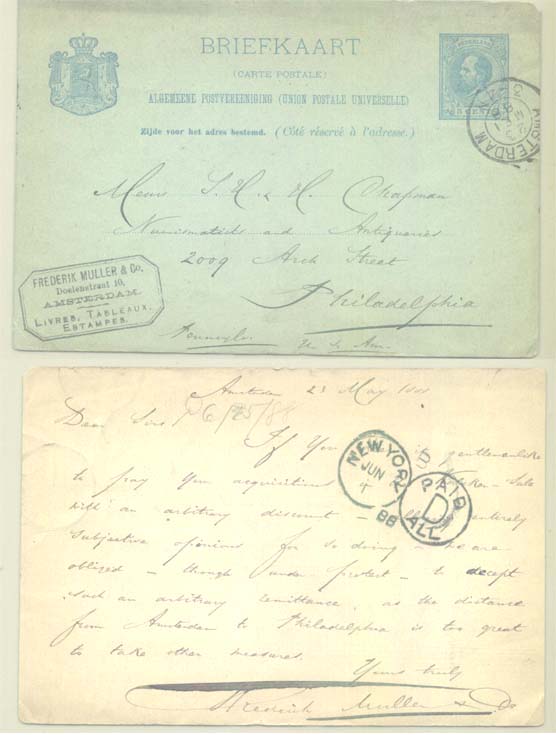 BRIEFKAART
(CARTE POSTALE)
ALGEMEENE POSTVEREENIGING (UNION POSTALE UNIVERSELLE)
Zijde voor het adres bestemd. (Côté réservé à l'adresse.)
NEDERLAND
5 CENT
AMSTERDAM
Messrs S. H. & H. Chapman
Numismatists and Antiquaries
2009 Arch Street
Philadelphia
Pennsylv. U. S. Am.
FREDERIK MULLER & Co.
Doelenstraat 10,
AMSTERDAM.
LIVRES, TABLEAUX,
ESTAMPES.
Amsterdam 23 May 1888
Dear Sirs! 6/25/88
If You gentlemanlike
to pay Your acquisitions Sale
with an arbitrary discount entirely
subjective opinions for so doing - we are
obliged - though under protest - to accept
such an arbitrary remittance, as the distance
from Amsterdam to Philadelphia is too great
to take other measures.
Yours truly
Frederik Muller & Co
NEW YORK
JUN
4
88
PAID
D
ALL